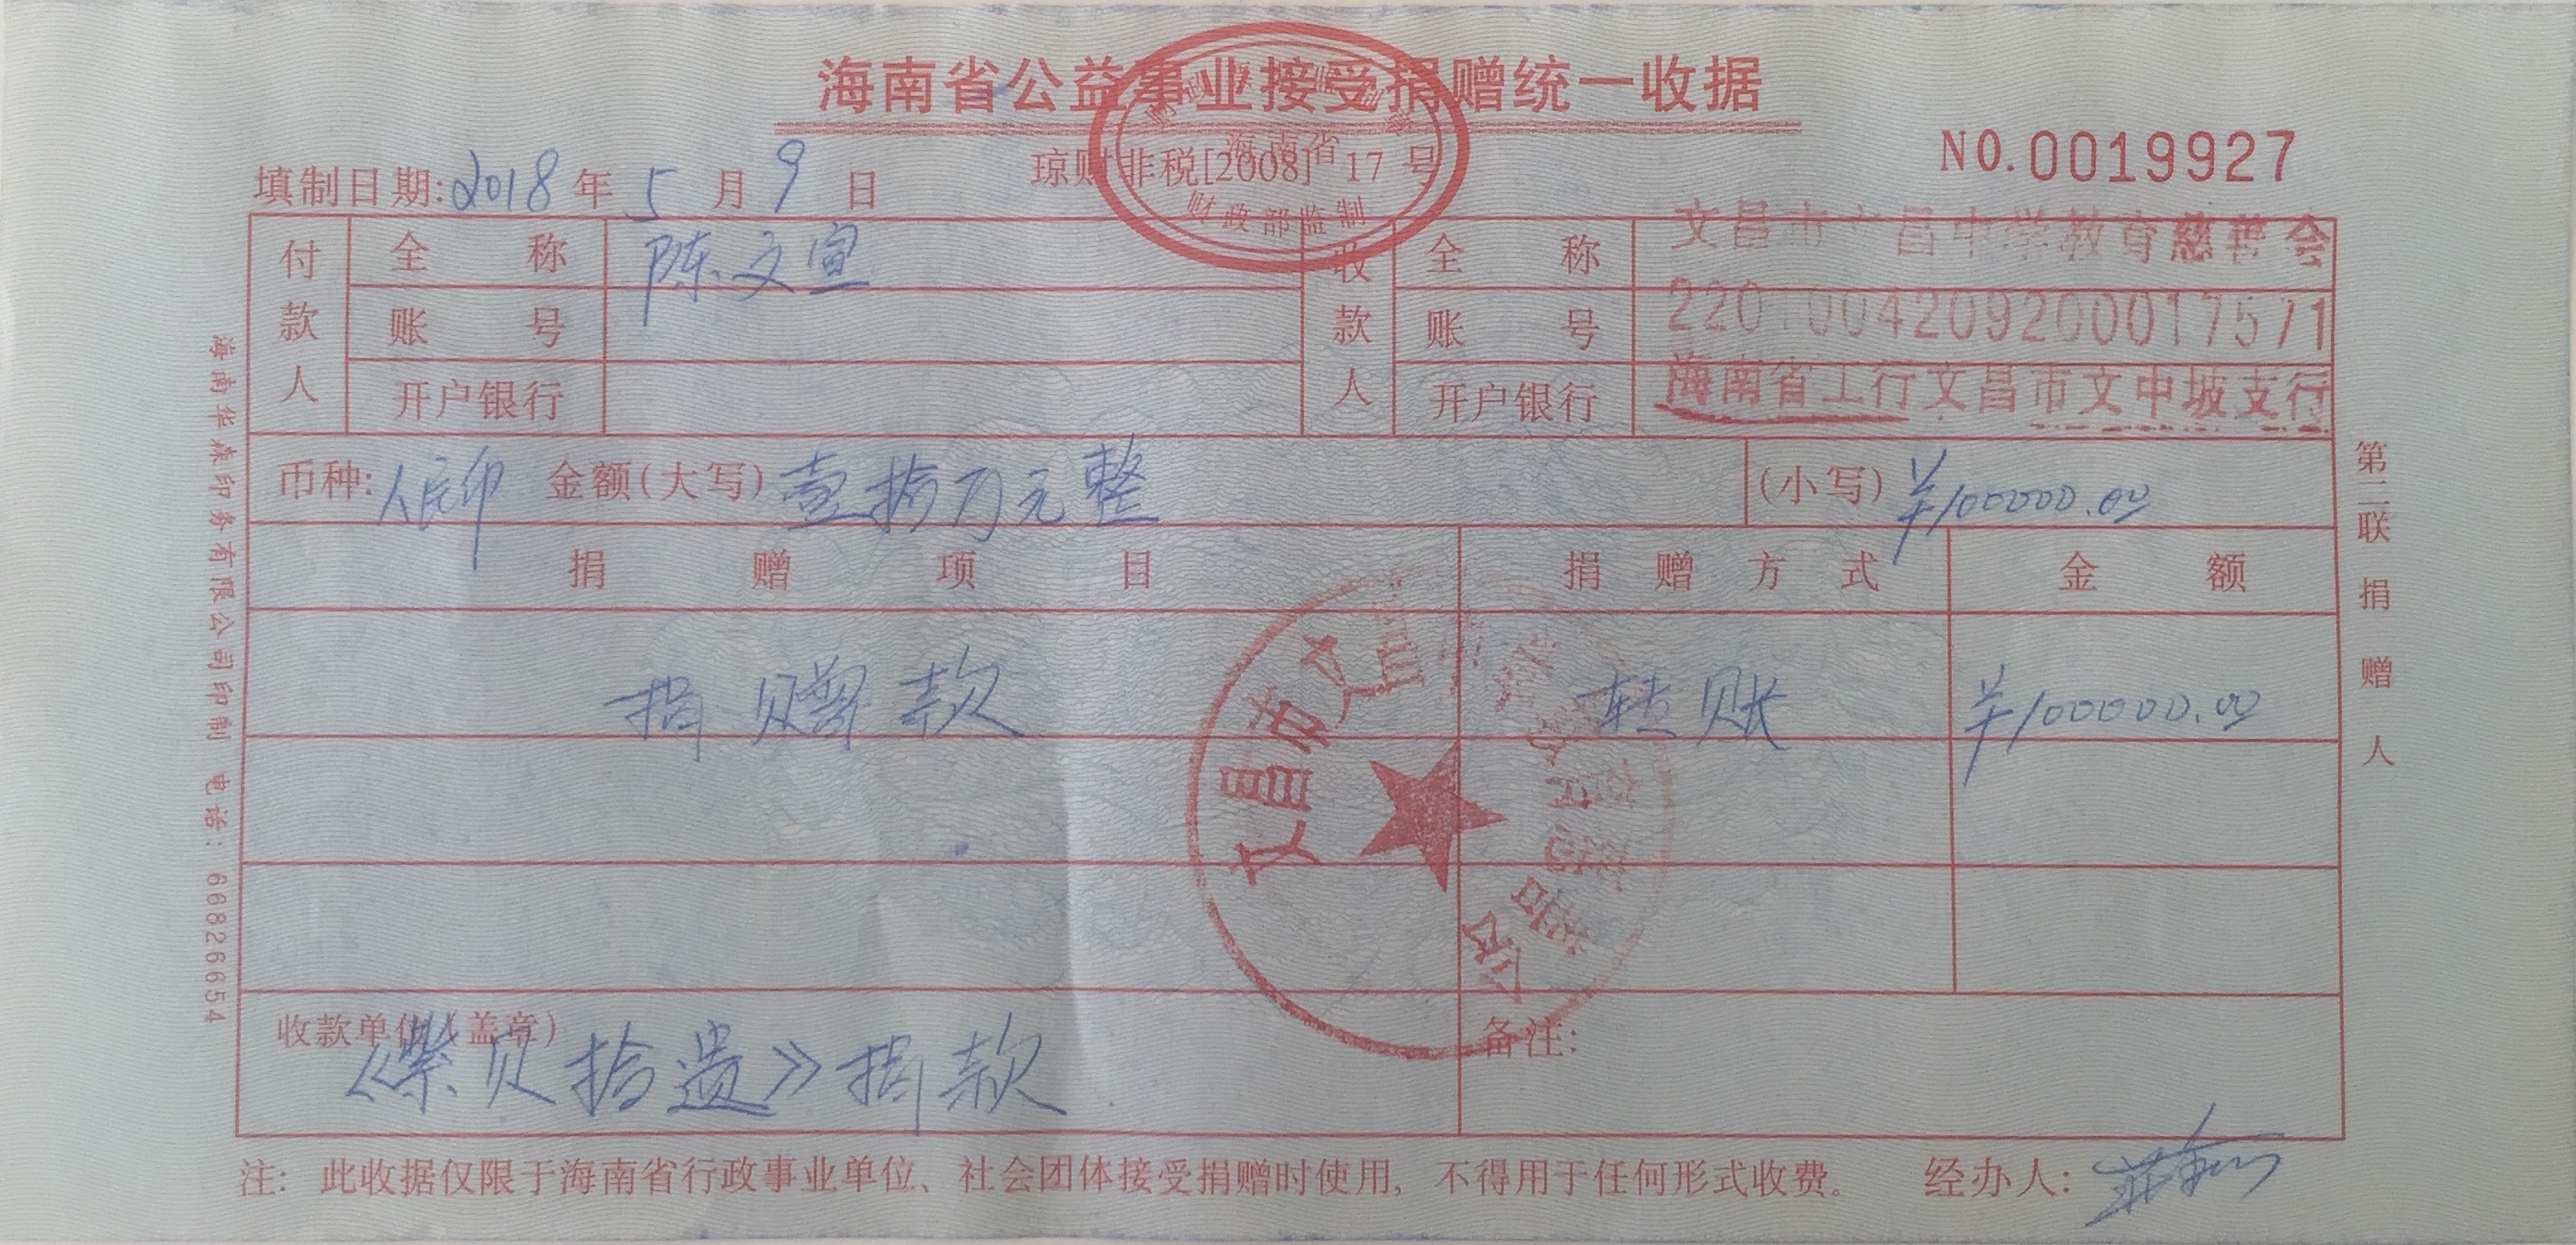 海南省公益事业接受捐赠统一收据
海南省
财政部监制
琼财非税[2008] 17 号
NO.0019927
填制日期:2018 年 5 月 9 日
付款人 全称 陈文宣
账号
开户银行
收款人 全称 文昌市文昌中学教育慈善会
账号 2201004209200017571
开户银行 海南省工行文昌市文中坡支行
币种: 人民币 金额(大写) 壹拾万元整 (小写) ¥100000.00
捐赠项目 捐赠方式 金额
捐赠款 转账 ¥100000.00
文昌市文昌中学教育慈善会
收款单位(盖章) 备注:
拾遗》捐款
注: 此收据仅限于海南省行政事业单位、社会团体接受捐赠时使用, 不得用于任何形式收费。 经办人:
第二联 捐赠人
海南华森印务有限公司印制 电话: 66826654